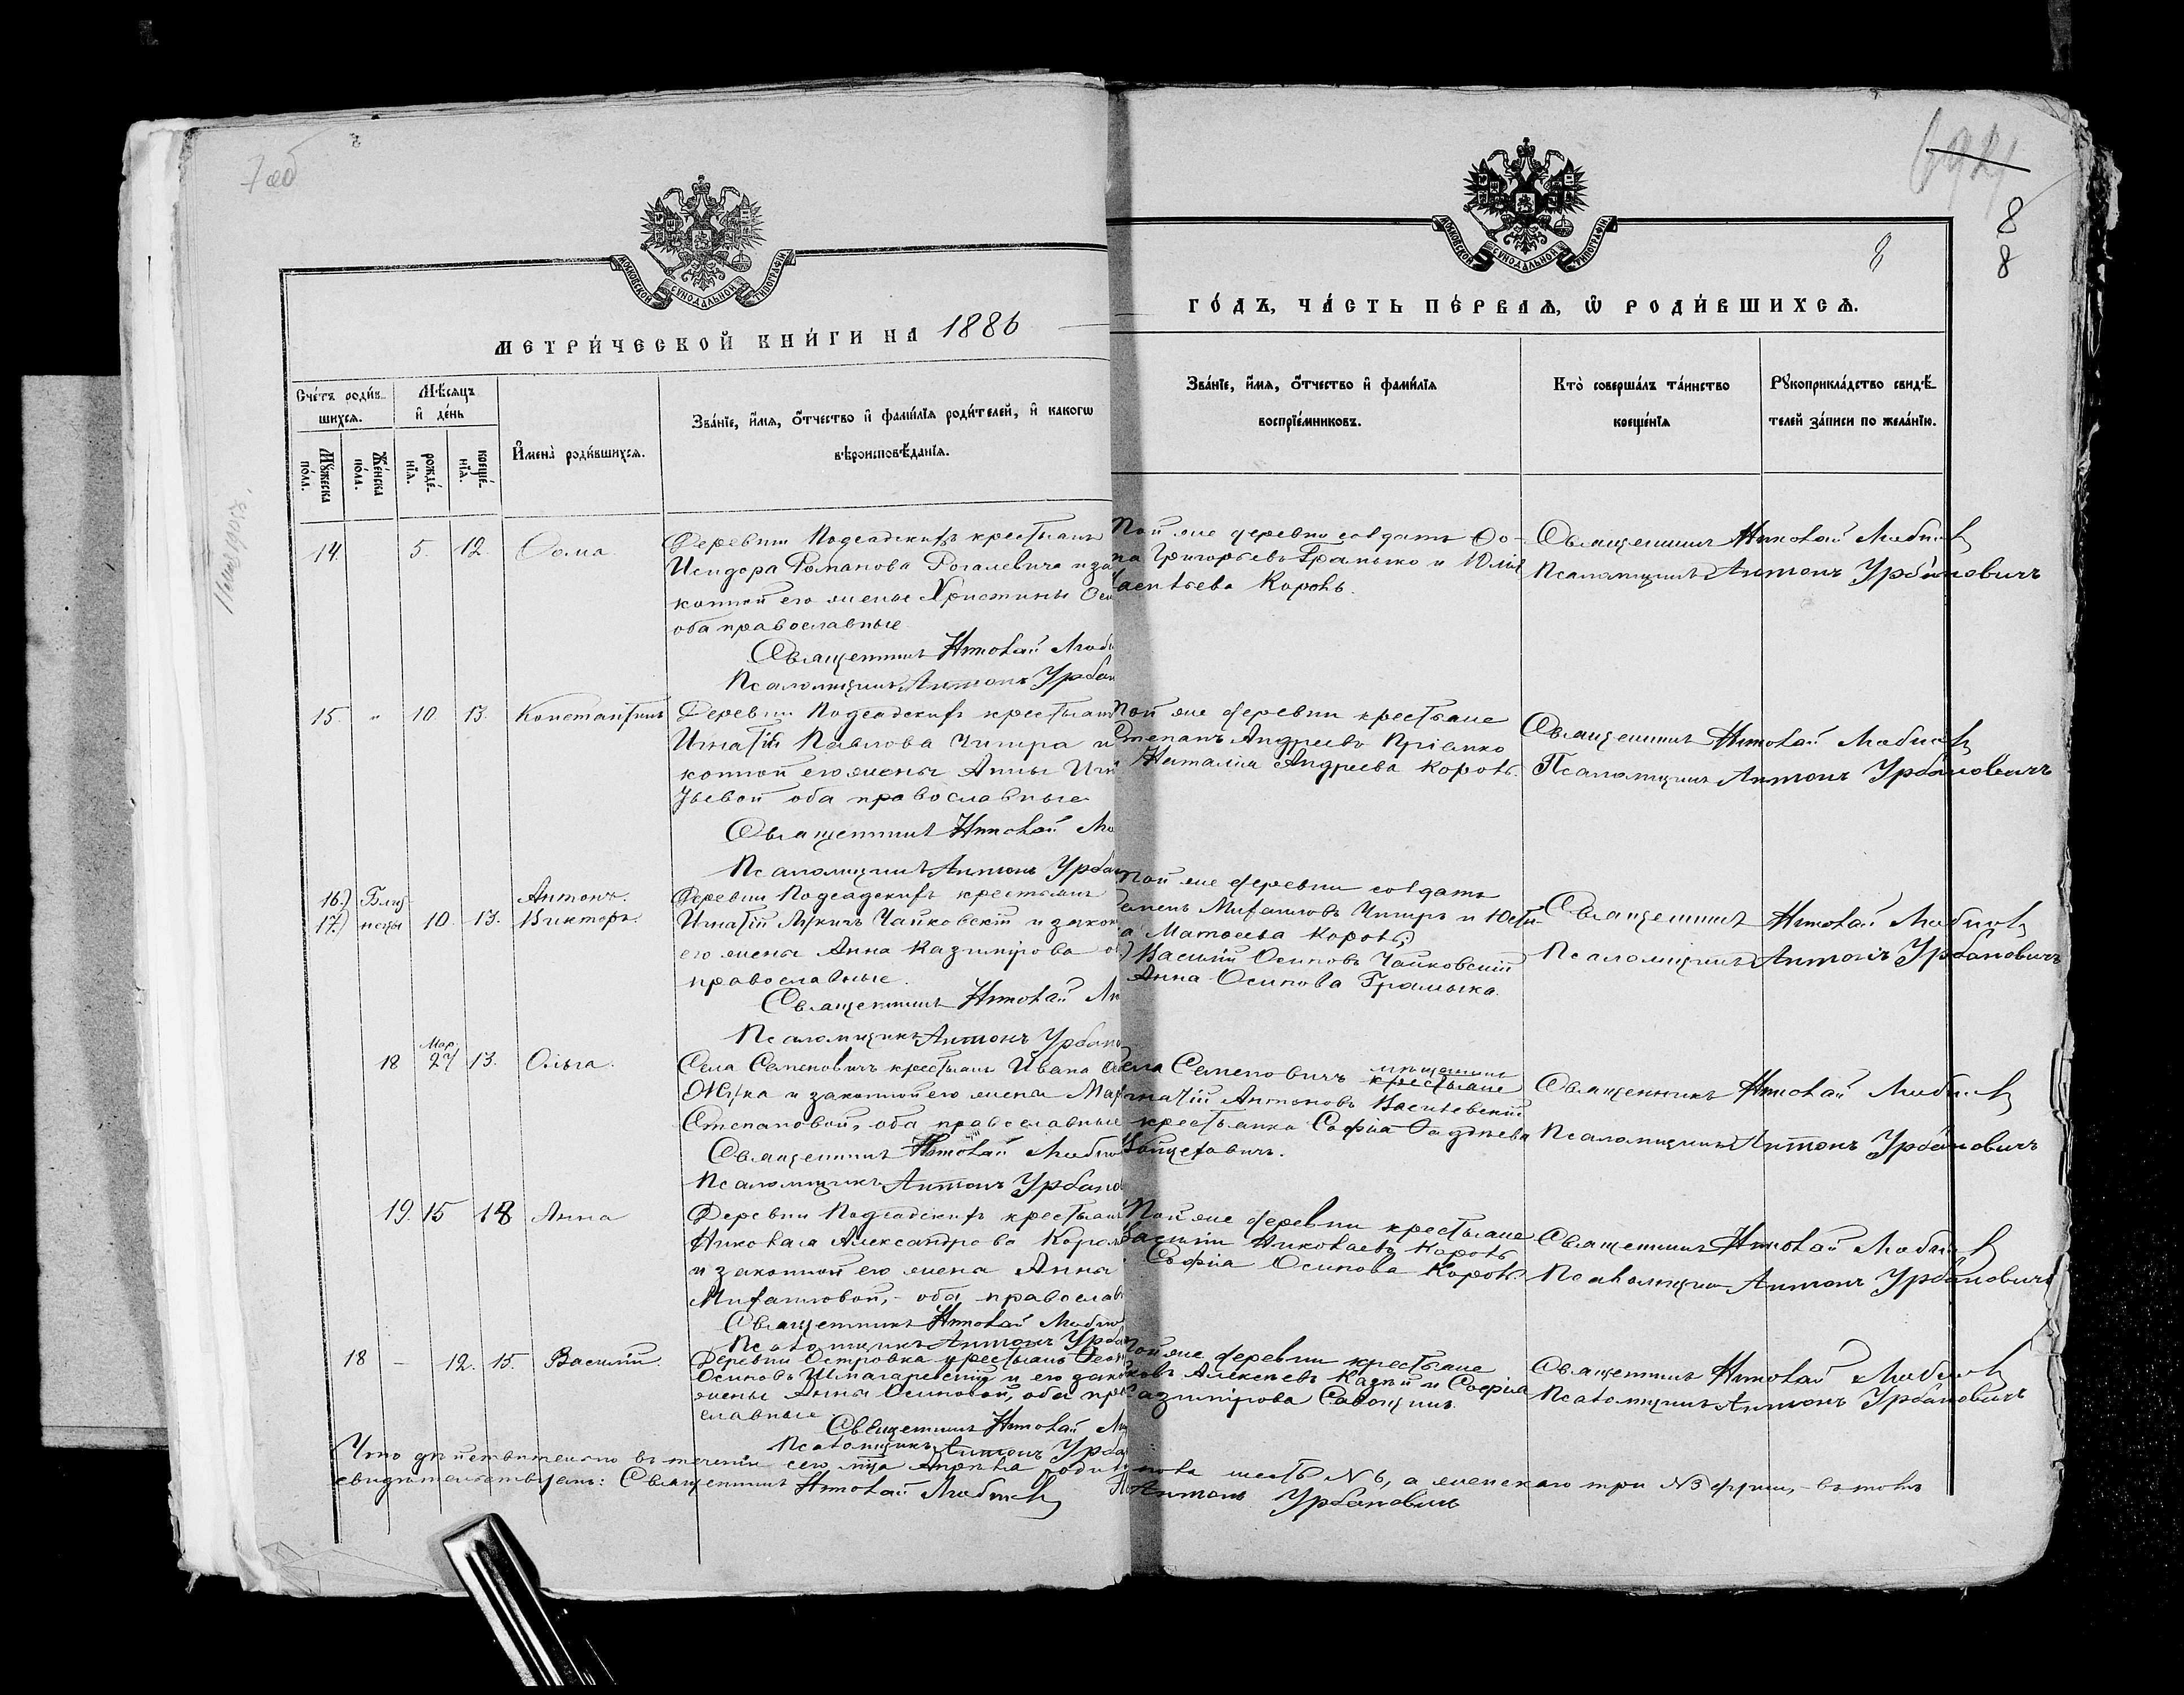 7 об
8
8
8
МЕТРИ́ЧЕСКОЙ КНИ́ГИ НА 1886
ГО́ДЪ, ЧА́СТЬ ПЕ́РВАѦ, Ѽ РОДИ́ВШИХСѦ.
МОСКОВСКОЙ СѴНОДАЛЬНОЙ ТИПОГРАФІИ
МОСКОВСКОЙ СѴНОДАЛЬНОЙ ТИПОГРАФІИ
Сче́тъ роди́в-
шихсѧ.
Мꙋжеска по́ла.
Же́нска по́ла.
Мѣ́сѧцъ
и҆ де́нь
рожде́-нїѧ.
креще́-нїѧ.
И҆мена̀ роди́вшихсѧ.
Зва́нїе, и҆́мѧ, ѻ҆́тчество и҆ фами́лїѧ роди́телей, и҆ како́гѡ
вѣроисповѣ́данїѧ.
Зва́нїе, и҆́мѧ, ѻ҆́тчество и҆ фами́лїѧ
воспрїе́мниковъ.
Кто̀ соверша́лъ та́инство
креще́нїѧ
Рꙋкоприкла́дство свидѣ́-
телей за́писи по жела́нїю.
14. 5. 12 Ѳома
Деревни Подсадскихъ крестьянъ
Исидора Романова Рогалевича и за
конной его жены Христины
оба православные
Священникъ Николай
Псаломщикъ Антонъ Урбан
Той же деревни солдатъ Ѳо-
ма Григорьевъ Грамыко и Юлія
Король.
Священникъ Николай
Псаломщикъ Антонъ Урбановичъ
15. " 10. 13. Константинъ
Деревни Подсадскихъ крестьянъ
Игнатій Павлова Читра и
конной его жены Анны Иг
оба православные
Священникъ Николай
Псаломщикъ Антонъ Урбан
Той же деревни крестьяне
Степанъ Андреевъ
Наталія Андреева Король.
Священникъ Николай
Псаломщикъ Антонъ Урбановичъ
16.) Близ
17.) нецы 10. 13.
Антонъ.
Викторъ.
Деревни Подсадскихъ крестьянъ
Игнатій Лукичъ Чайковскій и закон
его жены Анна Казимірова об
православные.
Священникъ Николай
Псаломщикъ Антонъ Урбан
Той же деревни солдатъ
Михаиловъ Читръ и Юсти
а Матѳеева Король;
) Василій Осиповъ Чайковскій
Анна Осипова Грамыка.
Священникъ Николай
Псаломщикъ Антонъ Урбановичъ
18 Мар. 27 13. Ольга.
Села Семеновичъ крестьянъ Ивана
Жука и законной его жены Мар
Степановой, оба православные
Священникъ Николай
Псаломщикъ Антонъ Урбано
мѣщанинъ
Села Семеновичъ крестьяне
Игнатій Антоновъ Василевскій
крестьянка Софія Фадѣева
Войцеховичъ.
Священникъ Николай
Псаломщикъ Антонъ Урбановичъ
19. 15 18 Анна
Деревни Подсадскихъ крестьянъ
Николая Александрова Король
и законной его жена Анна
Михаиловой, - оба православ
Священникъ Николай
Псаломщикъ Антонъ Урбан
Той же деревни крестьяне
Василій Николаевъ Король
Софія Осипова Король.
Священникъ Николай
Псаломщикъ Антонъ Урбановичъ
18 - 12. 15. Василій.
Деревни Островка крестьянъ
Осиповъ и его закон
жены Анны Осиповой, оба пра
славные
Священникъ Николай
Псаломщикъ Антонъ Урба
Той же деревни крестьяне
Алексѣевъ и Софія
Казимірова
Священникъ Николай
Псаломщикъ Антонъ Урбановичъ
Что дѣйствительно въ теченіи сего мѣсца Апрѣля родив пола шесть №6, а женскаго три №3 души, - въ томъ
свидѣтельствуемъ: Священникъ Николай Антонъ Урбановичъ